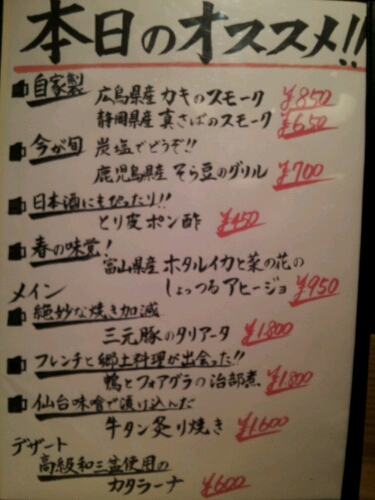 本日のオススメ!!
自家製
広島県産 カキのスモーク ¥850
静岡県産 真さばのスモーク ¥650
今が旬 炭塩でどうぞ!!
鹿児島県産 そら豆のグリル ¥700
日本酒にもぴったり!!
とり皮ポン酢 ¥450
春の味覚!
富山県産 ホタルイカと菜の花の
しょっつるアヒージョ ¥950
メイン
絶妙な焼き加減
三元豚のタリアータ ¥1800
フレンチと郷土料理が出会った!!
鴨とフォアグラの治部煮 ¥1800
仙台味噌で漬け込んだ
牛タン炙り焼き ¥1600
デザート
高級和三盆使用の
カタラーナ ¥600